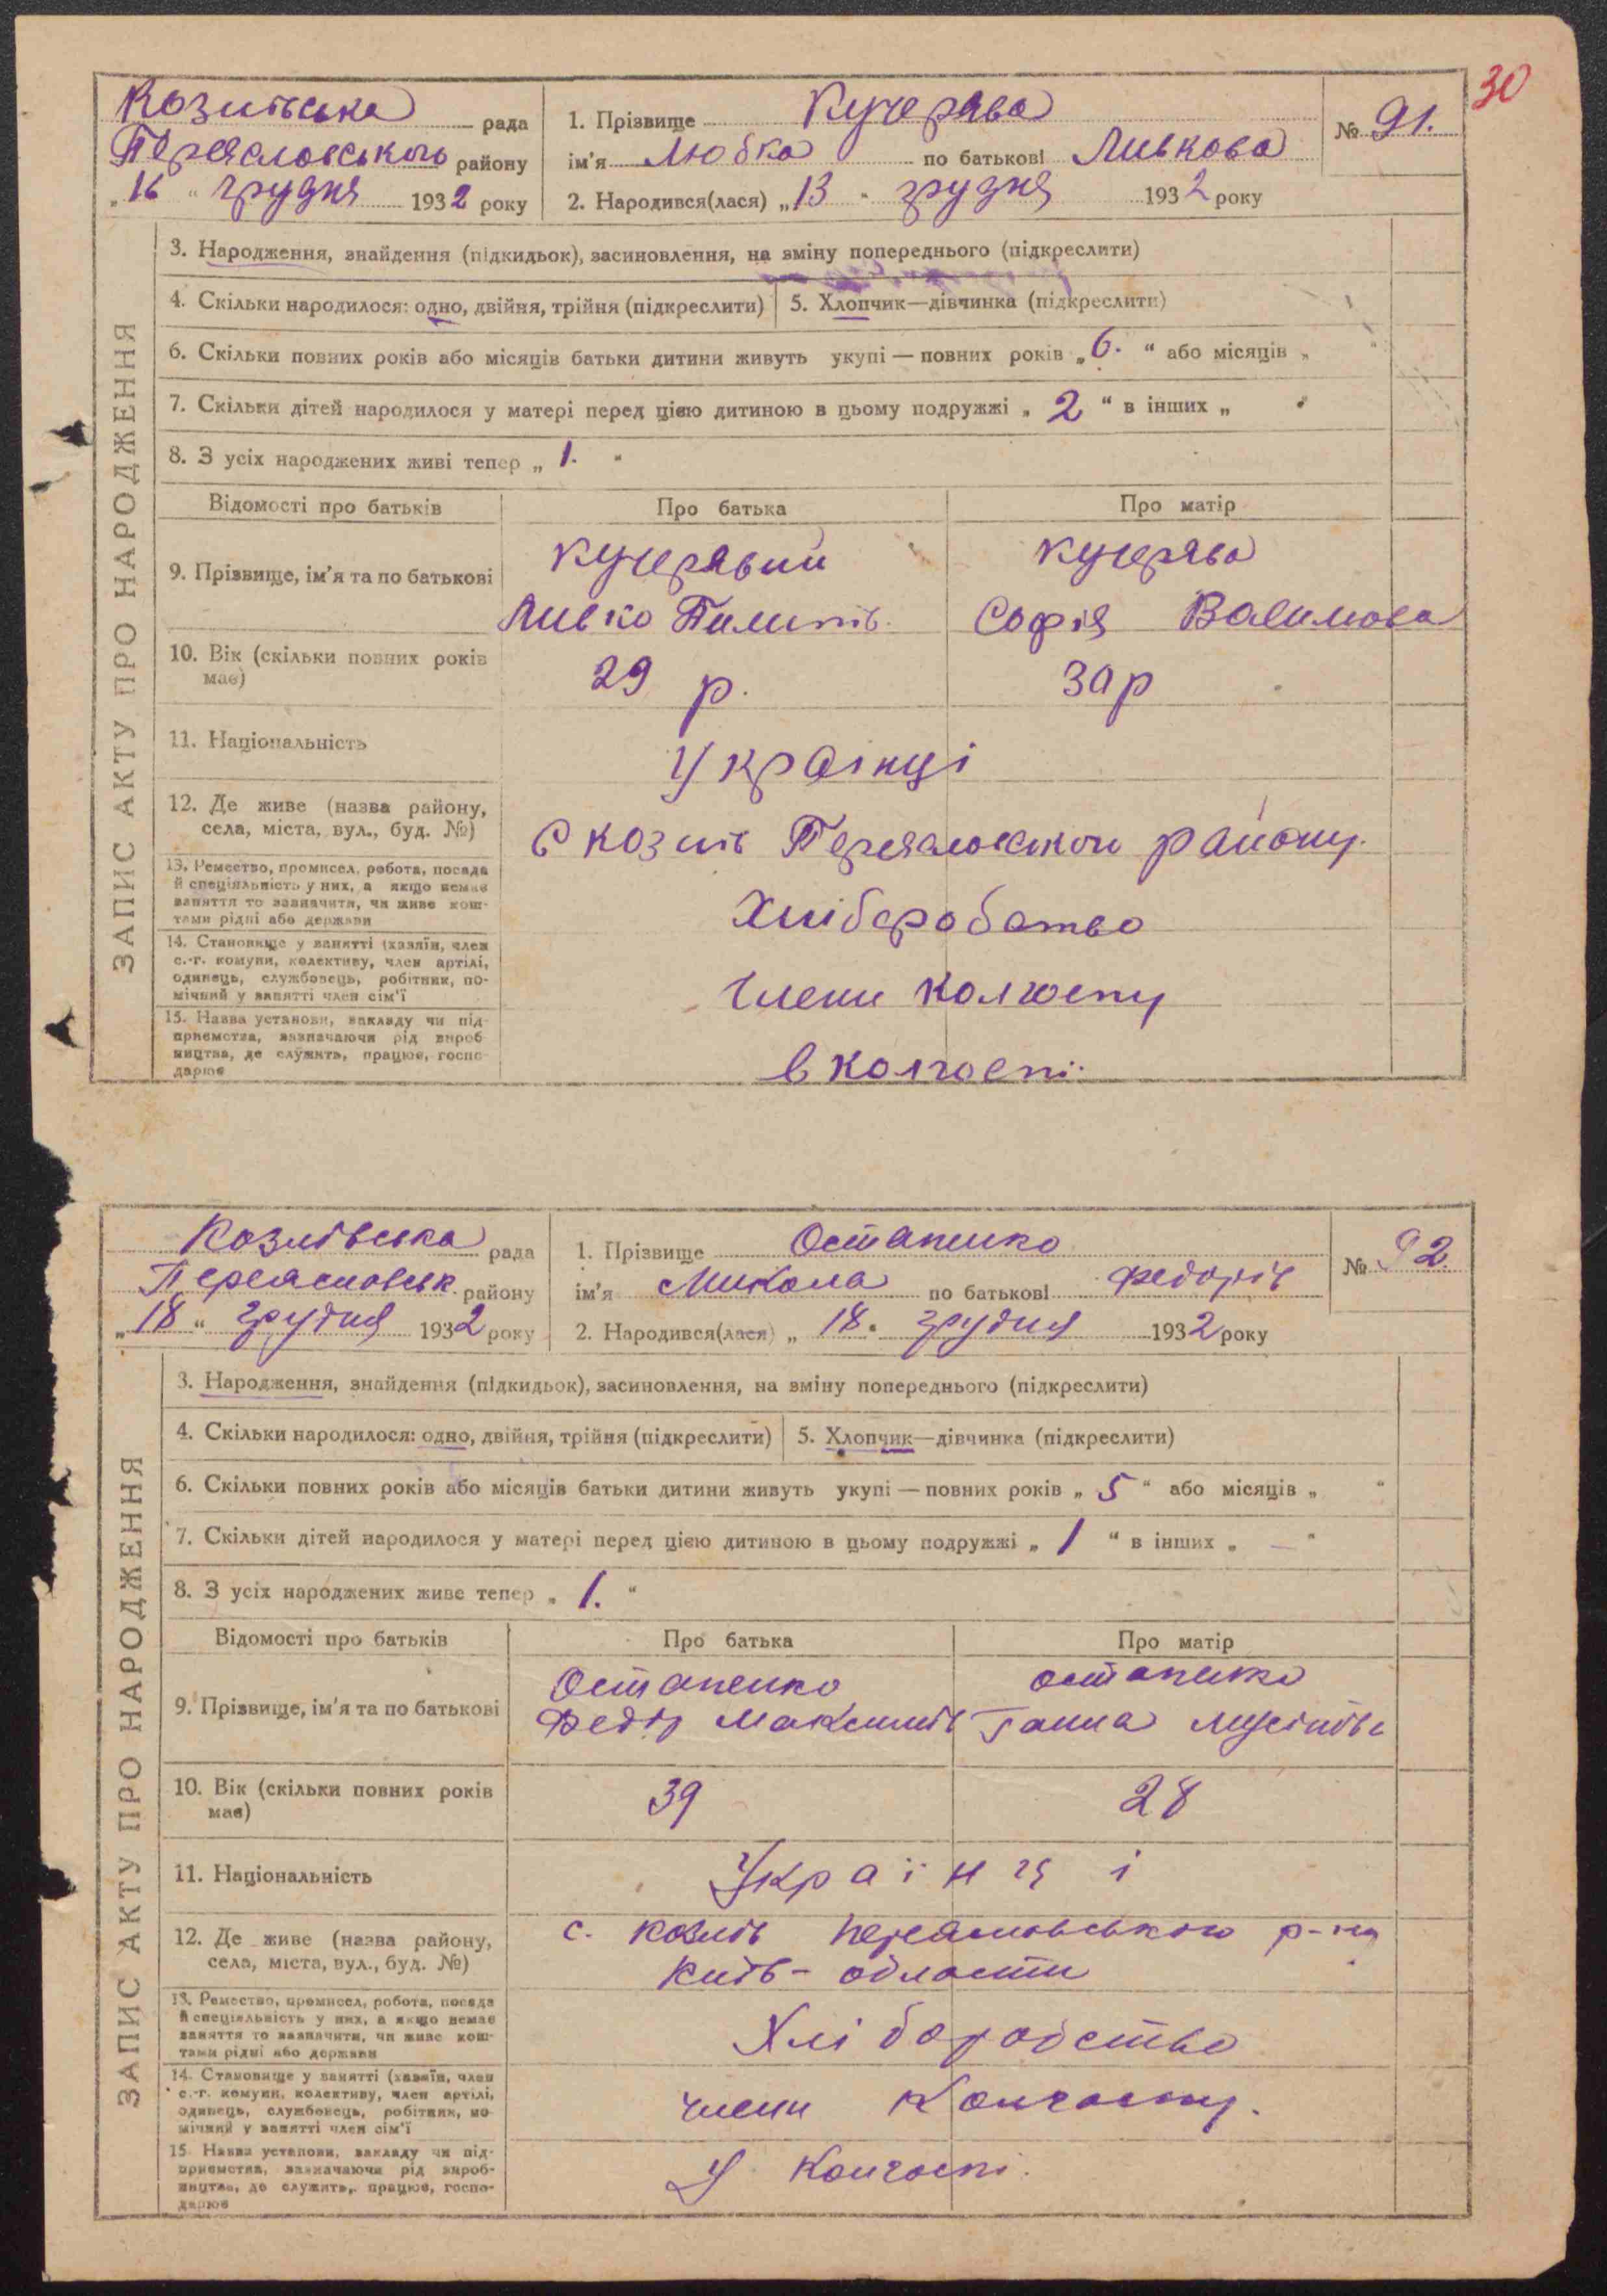 30
Козлівська рада
Переясловського району
„16“ грудня 1932 року
1. Прізвище Кучерява
ім'я Любка по батькові Ливкова
2. Народився(лася) „13“ грудня 1932 року
№ 91.
ЗАПИС АКТУ ПРО НАРОДЖЕННЯ
3. Народження, знайдення (підкидьок), засиновлення, на зміну попереднього (підкреслити)
4. Скільки народилося: одно, двійня, трійня (підкреслити)
5. Хлопчик—дівчинка (підкреслити)
6. Скільки повних років або місяців батьки дитини живуть укупі — повних років „6.“ або місяців „ “
7. Скільки дітей народилося у матері перед цією дитиною в цьому подружжі „2“ в інших „ “
8. З усіх народжених живі тепер „1.“
Відомості про батьків
Про батька
Про матір
9. Прізвище, ім'я та по батькові
Кучерявий
Ливко Пилипів.
Кучерява
Софія
10. Вік (скільки повних років
має)
29 р.
30 р
11. Національність
Українці
12. Де живе (назва району,
села, міста, вул., буд. №)
С Козлів Переясловського району.
13. Ремество, промисел, робота, посада
й спеціяльність у них, а якщо немає
заняття то зазначити, чи живе кош-
тами рідні або держави
Хліборобство
14. Становище у занятті (хазяїн, член
с.-г. комуни, колективу, член артілі,
одинець, службовець, робітник, по-
мічний у занятті член сім'ї
Члени колгоспу
15. Назва установи, закладу чи під-
приємства, зазначаючи рід вироб
ництва, де служить, працює, госпо-
дарює
в колгоспі.
Козлівська рада
Переясловськ. району
„18“ грудня 1932 року
1. Прізвище Остапенко
ім'я Микола по батькові Федорів
2. Народився(лася) „18“ грудня 1932 року
№ 92.
ЗАПИС АКТУ ПРО НАРОДЖЕННЯ
3. Народження, знайдення (підкидьок), засиновлення, на зміну попереднього (підкреслити)
4. Скільки народилося: одно, двійня, трійня (підкреслити)
5. Хлопчик—дівчинка (підкреслити)
6. Скільки повних років або місяців батьки дитини живуть укупі — повних років „5“ або місяців „ “
7. Скільки дітей народилося у матері перед цією дитиною в цьому подружжі „1“ в інших „—“
8. З усіх народжених живе тепер „1.“
Відомості про батьків
Про батька
Про матір
9. Прізвище, ім'я та по батькові
Остапенко
Федір Максимів
Остапенко
Ганна Мусіївна
10. Вік (скільки повних років
має)
39
28
11. Національність
Українці
12. Де живе (назва району,
села, міста, вул., буд. №)
с. Козлів Переясловського р-ну
Київ- области
13. Ремество, промисел, робота, посада
й спеціяльність у них, а якщо немає
заняття то зазначити, чи живе кош-
тами рідні або держави
Хліборобство
14. Становище у занятті (хазяїн, член
с.-г. комуни, колективу, член артілі,
одинець, службовець, робітник, по
мічний у занятті член сім'ї
члени Колгоспу.
15. Назва установи, закладу чи під-
приємства, зазначаючи рід вироб-
ництва, де служить, працює, госпо-
дарює
У Колгоспі.